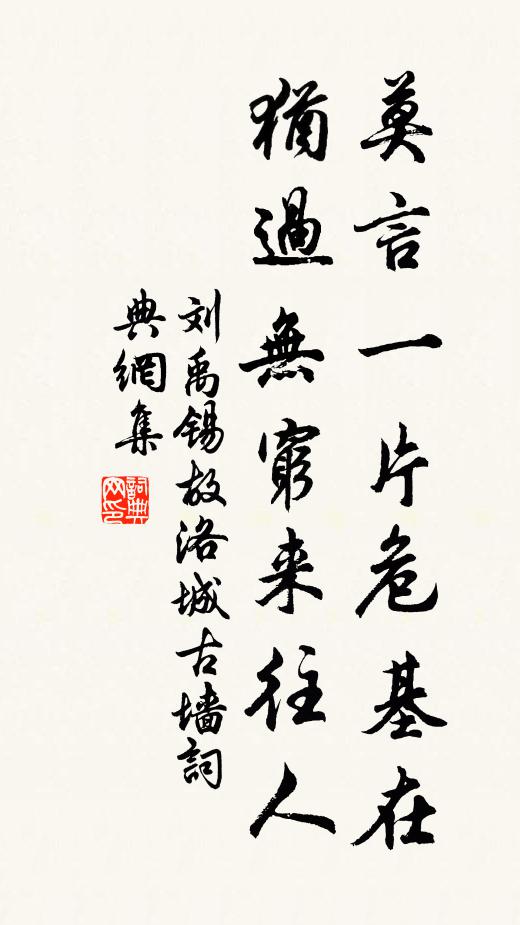 莫言一片危基在
猶過無窮来往人
刘禹锡故洛城古墙詞
典網集
詞典网印